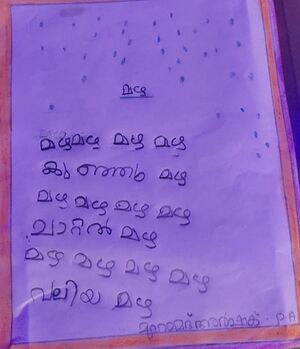 മഴ
മഴമഴ മഴ മഴ
കുഞ്ഞു മഴ
മഴ മഴ മഴ മഴ
ചാറ്റൽ മഴ
മഴ മഴ മഴ മഴ
വലിയ മഴ
P.A